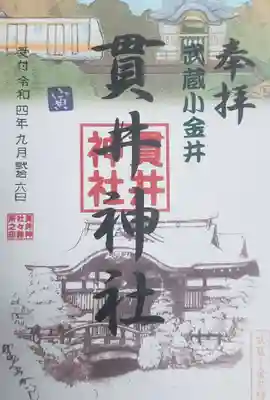 奉拝
武蔵小金井
貫井神社
貫井
神社
寅
受付 令和四年九月弐拾六日
貫井神
社々務
所之印